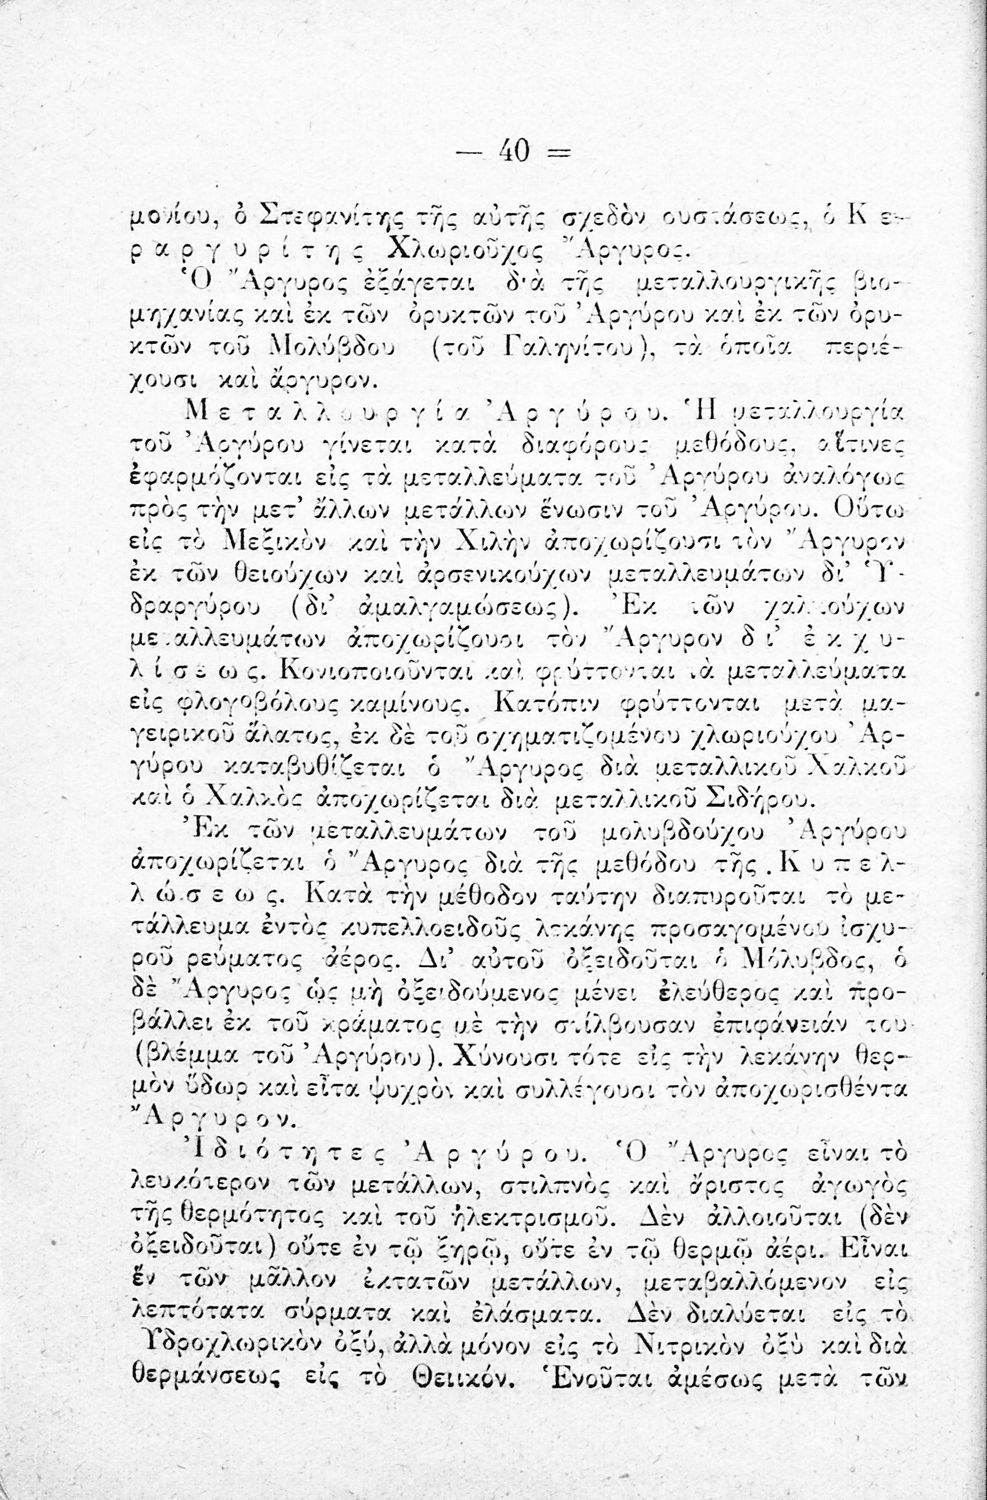 — 40 =
μονίου, ὁ Στεφανίτης τῆς αὐτῆς σχεδὸν συστάσεως, ὁ Κ ε-
ρ α ρ γ υ ρ ί τ η ς Χλωριοῦχος Ἄργυρος.
Ὁ Ἄργυρος ἐξάγεται διὰ τῆς μεταλλουργικῆς βιο-
μηχανίας καὶ ἐκ τῶν ὀρυκτῶν τοῦ Ἀργύρου καὶ ἐκ τῶν ὀρυ-
κτῶν τοῦ Μολύβδου (τοῦ Γαληνίτου), τὰ ὁποῖα περιέ-
χουσι καὶ ἄργυρον.
Μ ε τ α λ λ ο υ ρ γ ί α Ἀ ρ γ ύ ρ ο υ. Ἡ μεταλλουργία
τοῦ Ἀργύρου γίνεται κατὰ διαφόρους μεθόδους, αἵτινες
ἐφαρμόζονται εἰς τὰ μεταλλεύματα τοῦ Ἀργύρου ἀναλόγως
πρὸς τὴν μετ’ ἄλλων μετάλλων ἕνωσιν τοῦ Ἀργύρου. Οὕτω
εἰς τὸ Μεξικὸν καὶ τὴν Χιλὴν ἀποχωρίζουσι τὸν Ἄργυρον
ἐκ τῶν θειούχων καὶ ἀρσενικούχων μεταλλευμάτων δι’ Ὑ-
δραργύρου (δι’ ἀμαλγαμώσεως). Ἐκ τῶν χαλκούχων
μεταλλευμάτων ἀποχωρίζουσι τὸν Ἄργυρον δ ι’ ἐ κ χ υ-
λ ί σ ε ω ς. Κονιοποιοῦνται καὶ φρύττονται τὰ μεταλλεύματα
εἰς φλογοβόλους καμίνους. Κατόπιν φρύττονται μετὰ μα-
γειρικοῦ ἅλατος, ἐκ δὲ τοῦ σχηματιζομένου χλωριούχου Ἀρ-
γύρου καταβυθίζεται ὁ Ἄργυρος διὰ μεταλλικοῦ Χαλκοῦ
καὶ ὁ Χαλκὸς ἀποχωρίζεται διὰ μεταλλικοῦ Σιδήρου.
Ἐκ τῶν μεταλλευμάτων τοῦ μολυβδούχου Ἀργύρου
ἀποχωρίζεται ὁ Ἄργυρος διὰ τῆς μεθόδου τῆς Κ υ π ε λ-
λ ώ σ ε ω ς. Κατὰ τὴν μέθοδον ταύτην διαπυροῦται τὸ με-
τάλλευμα ἐντὸς κυπελλοειδοῦς λεκάνης προσαγομένου ἰσχυ-
ροῦ ρεύματος ἀέρος. Δι’ αὐτοῦ ὀξειδοῦται ὁ Μόλυβδος, ὁ
δὲ Ἄργυρος ὡς μὴ ὀξειδούμενος μένει ἐλεύθερος καὶ προ-
βάλλει ἐκ τοῦ κράματος μὲ τὴν στίλβουσαν ἐπιφάνειάν του
(βλέμμα τοῦ Ἀργύρου). Χύνουσι τότε εἰς τὴν λεκάνην θερ-
μὸν ὕδωρ καὶ εἶτα ψυχρὸν καὶ συλλέγουσι τὸν ἀποχωρισθέντα
Ἄ ρ γ υ ρ ο ν.
Ἰ δ ι ό τ η τ ε ς Ἀ ρ γ ύ ρ ο υ. Ὁ Ἄργυρος εἶναι τὸ
λευκότερον τῶν μετάλλων, στιλπνὸς καὶ ἄριστος ἀγωγὸς
τῆς θερμότητος καὶ τοῦ ἠλεκτρισμοῦ. Δὲν ἀλλοιοῦται (δὲν
ὀξειδοῦται) οὔτε ἐν τῷ ξηρῷ, οὔτε ἐν τῷ θερμῷ ἀέρι. Εἶναι
ἓν τῶν μᾶλλον ἐκτατῶν μετάλλων, μεταβαλλόμενον εἰς
λεπτότατα σύρματα καὶ ἐλάσματα. Δὲν διαλύεται εἰς τὸ
Ὑδροχλωρικὸν ὀξύ, ἀλλὰ μόνον εἰς τὸ Νιτρικὸν ὀξὺ καὶ διὰ
θερμάνσεως εἰς τὸ Θειικόν. Ἑνοῦται ἀμέσως μετὰ τῶν